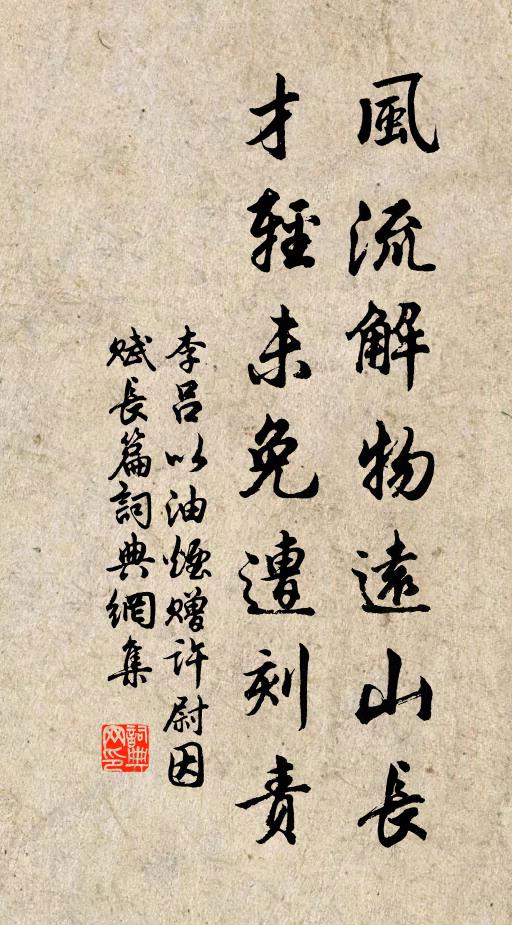 風流解物遠山長
才輕未免遭刻責
李呂以油煙贈許尉因
賦長篇詞典網集
詞典
网印